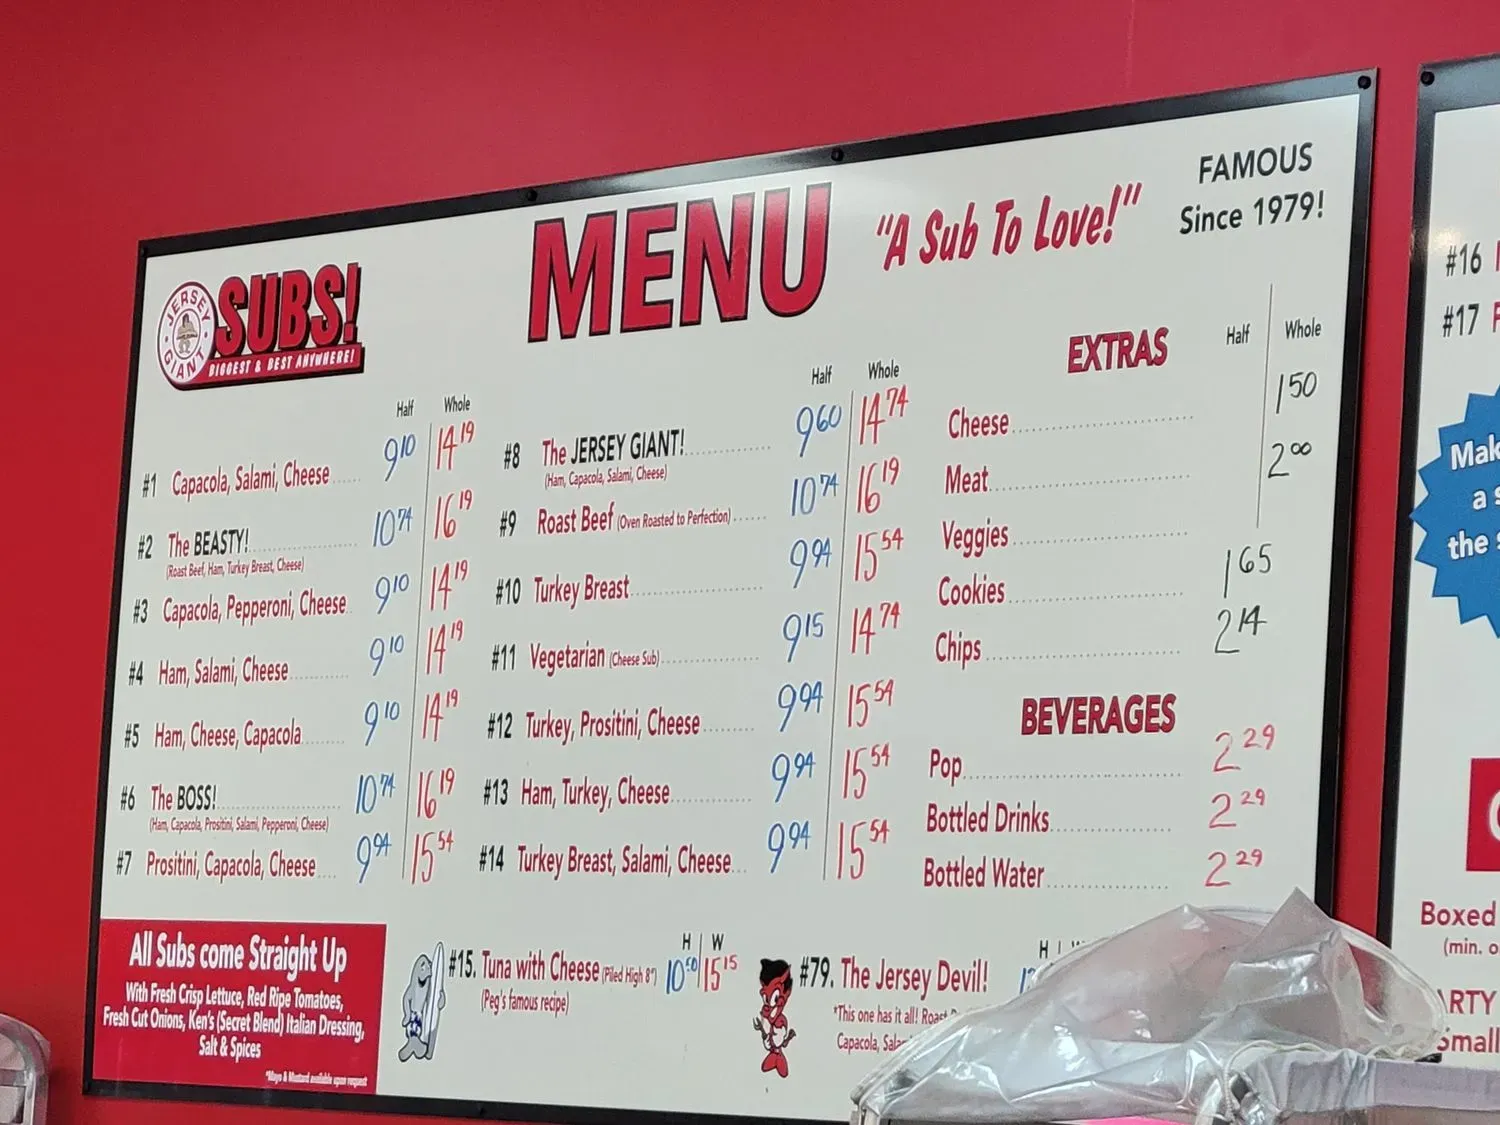 MENU
"A Sub To Love!"
FAMOUS
Since 1979!
JERSEY GIANT
SUBS!
BIGGEST & BEST ANYWHERE!
Half Whole
#1 Capacola, Salami, Cheese 9.10 14.19
#2 The BEASTY! 10.74 16.19
(Roast Beef, Ham, Turkey Breast, Cheese)
#3 Capacola, Pepperoni, Cheese 9.10 14.19
#4 Ham, Salami, Cheese 9.10 14.19
#5 Ham, Cheese, Capacola 9.10 14.19
#6 The BOSS! 10.74 16.19
(Ham, Capacola, Prositini, Salami, Pepperoni, Cheese)
#7 Prositini, Capacola, Cheese 9.94 15.54
Half Whole
#8 The JERSEY GIANT! 9.60 14.74
(Ham, Capacola, Salami, Cheese)
#9 Roast Beef (Oven Roasted to Perfection) 10.74 16.19
#10 Turkey Breast 9.94 15.54
#11 Vegetarian (Cheese Sub) 9.15 14.74
#12 Turkey, Prositini, Cheese 9.94 15.54
#13 Ham, Turkey, Cheese 9.94 15.54
#14 Turkey Breast, Salami, Cheese 9.94 15.54
EXTRAS Half Whole
Cheese 1.50
Meat 2.00
Veggies
Cookies 1.65
Chips 2.14
BEVERAGES
Pop 2.29
Bottled Drinks 2.29
Bottled Water 2.29
All Subs come Straight Up
With Fresh Crisp Lettuce, Red Ripe Tomatoes,
Fresh Cut Onions, Ken's (Secret Blend) Italian Dressing,
Salt & Spices
*Mayo & Mustard available upon request
H W
#15. Tuna with Cheese (Piled High 8") 10.50 15.15
(Peg's famous recipe)
H
#79. The Jersey Devil!
*This one has it all! Roast
Capacola,
#16
#17
a
the
Boxed
(min.